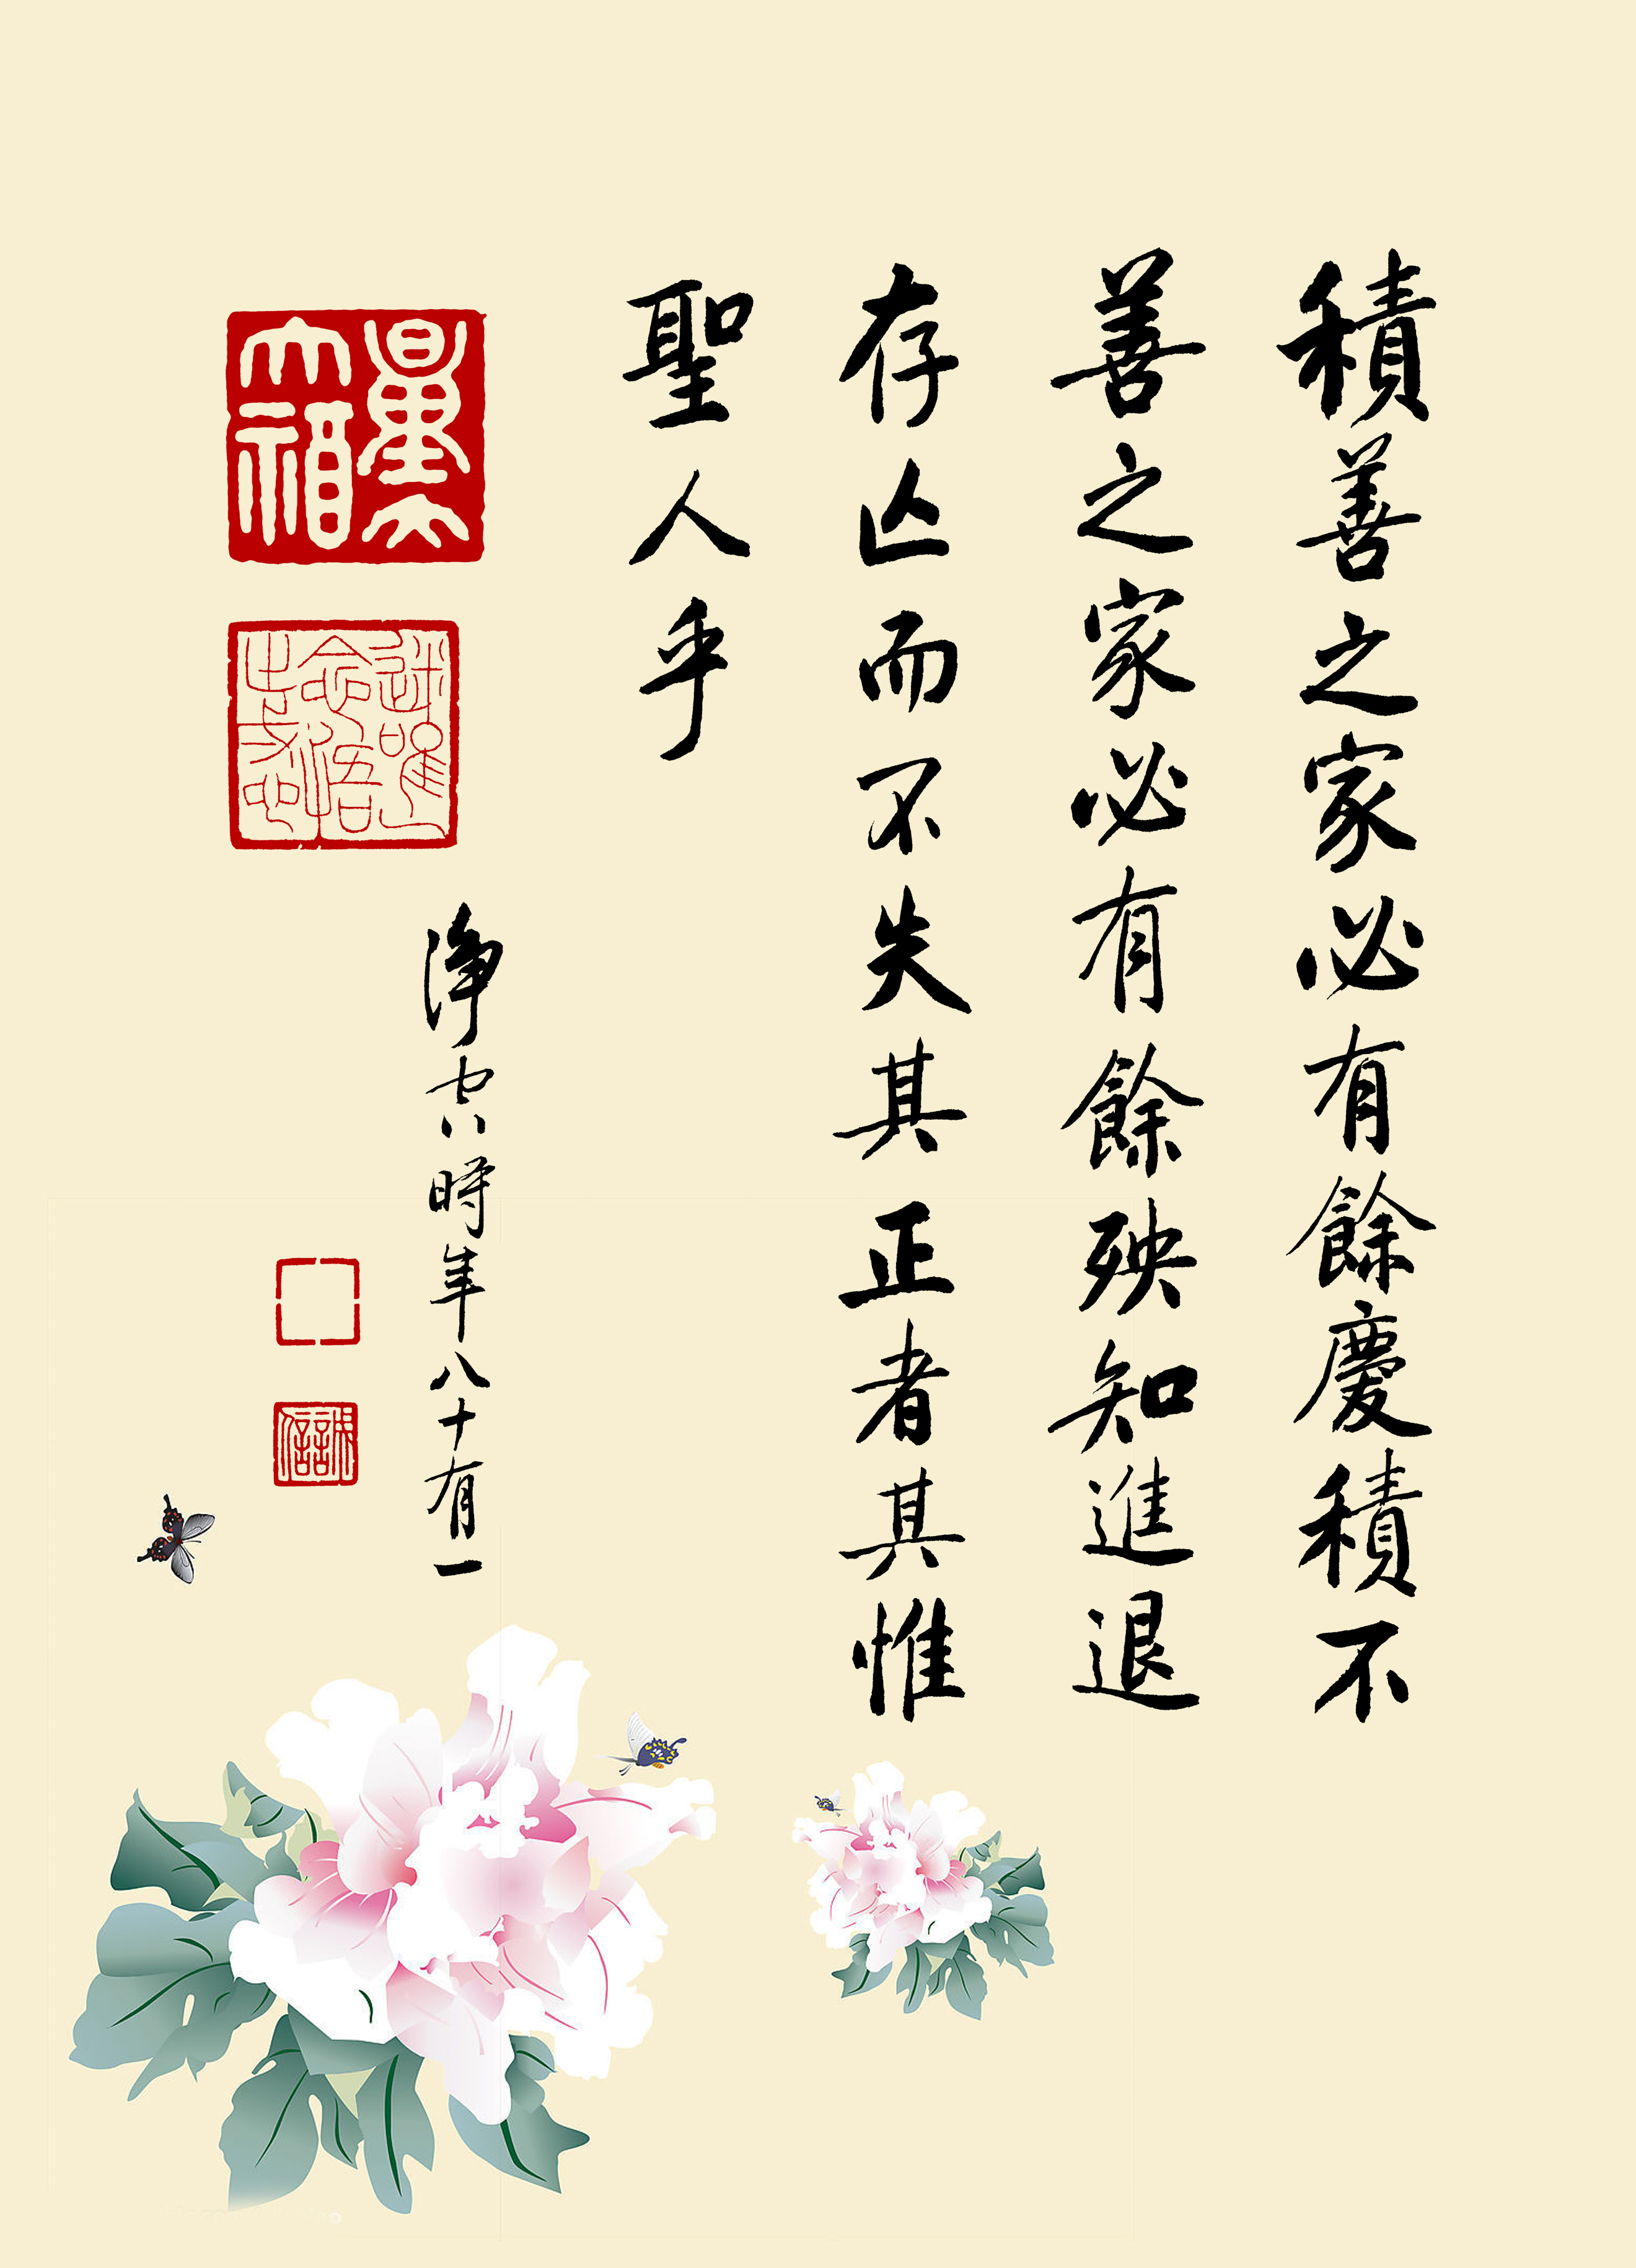 積善之家必有餘慶積不
善之家必有餘殃知進退
存亾而不失其正者其惟
聖人乎
淨空時年八十有一